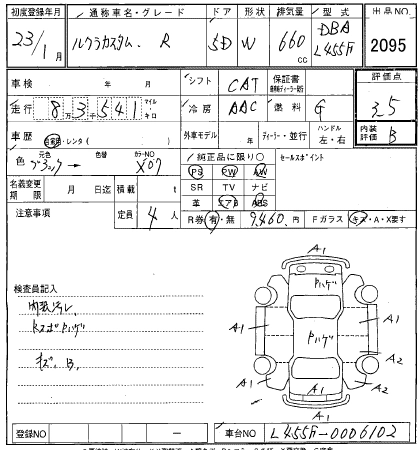 初度登録年月 通称車名・グレード ドア 形状 排気量 型式 出品NO.
23/1月 ルクラカスタム. R 5D W 660cc DBA L455F 2095
車検 年 月 シフト CAT 保証書 評価点
走行 8万3千541 マイル キロ 冷房 AAC 燃料 G 3.5
車歴 自家用・レンタ( ) 外車モデル 年 ディーラー・並行 ハンドル 左・右 内装評価 B
色 元色 ブラック → 色替 カラーNO X07 純正品に限り○ セールスポイント
名義変更期限 月 日迄 積載 t PS PW AW
SR TV ナビ
革 エアB ABS
注意事項 定員 4人 R券 有・無 9,460.円 Fガラス キズ・A・X要す
検査員記入
内装ヨゴレ
ドスボ ハゲ
キズ. B.
A1
ハゲ
A1 ハゲ A1
A1 A2
A1
登録NO ー 車台NO L455F-0006102